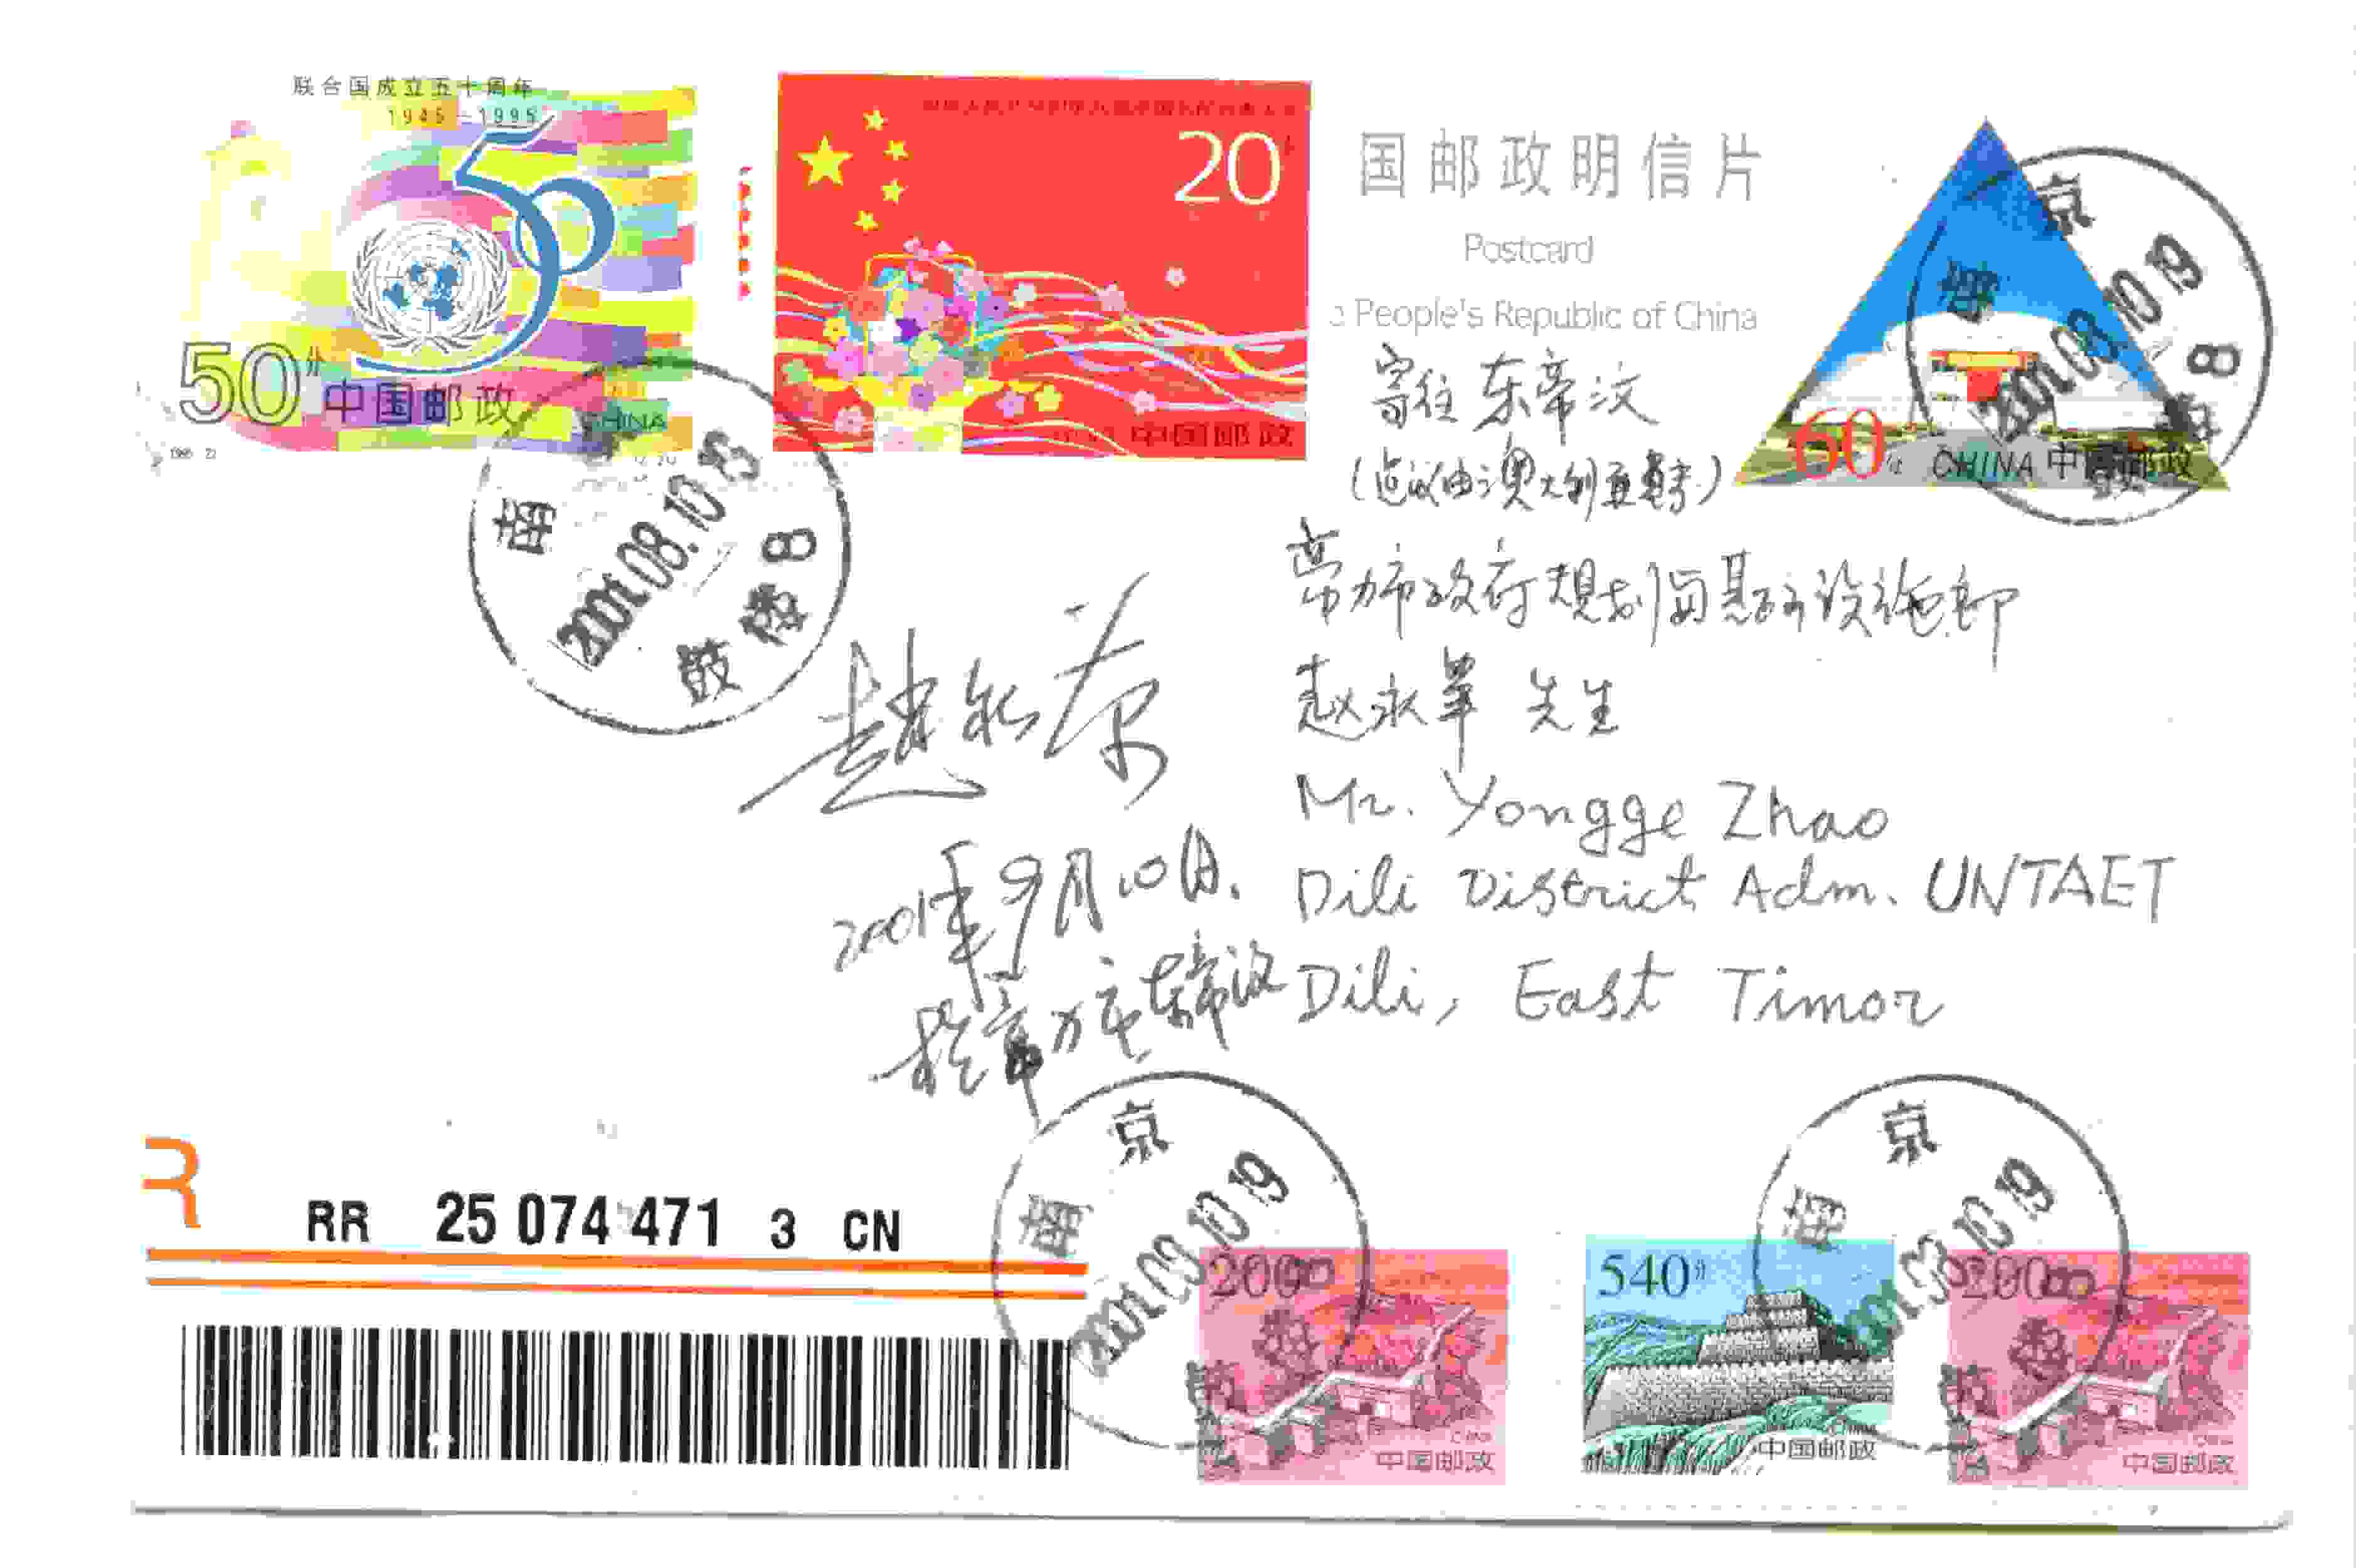 联合国成立五十周年
1945-1995
50分 中国邮政
CHINA
20分
中国邮政
国邮政明信片
Postcard
People's Republic of China
60分 CHINA 中国邮政
南京
2001.08.10.19
鼓楼 8
南
2001.08.10
鼓楼 8
寄往 东帝汶
帝力市政府规划与基础设施部
赵永革 先生
Mr. Yongge Zhao
Dili District Adm. UNTAET
Dili, East Timor
2001年9月10日.
帝力市 东帝汶
R
RR 25 074 471 3 CN
南京
10 19
200分
中国邮政
540分
CHINA
中国邮政
南京
10 19
200分
中国邮政